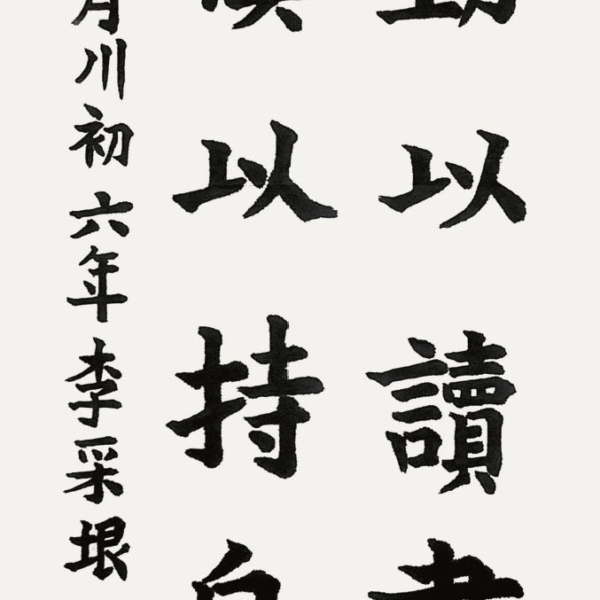 以讀書
以持
月川初六年李采垠